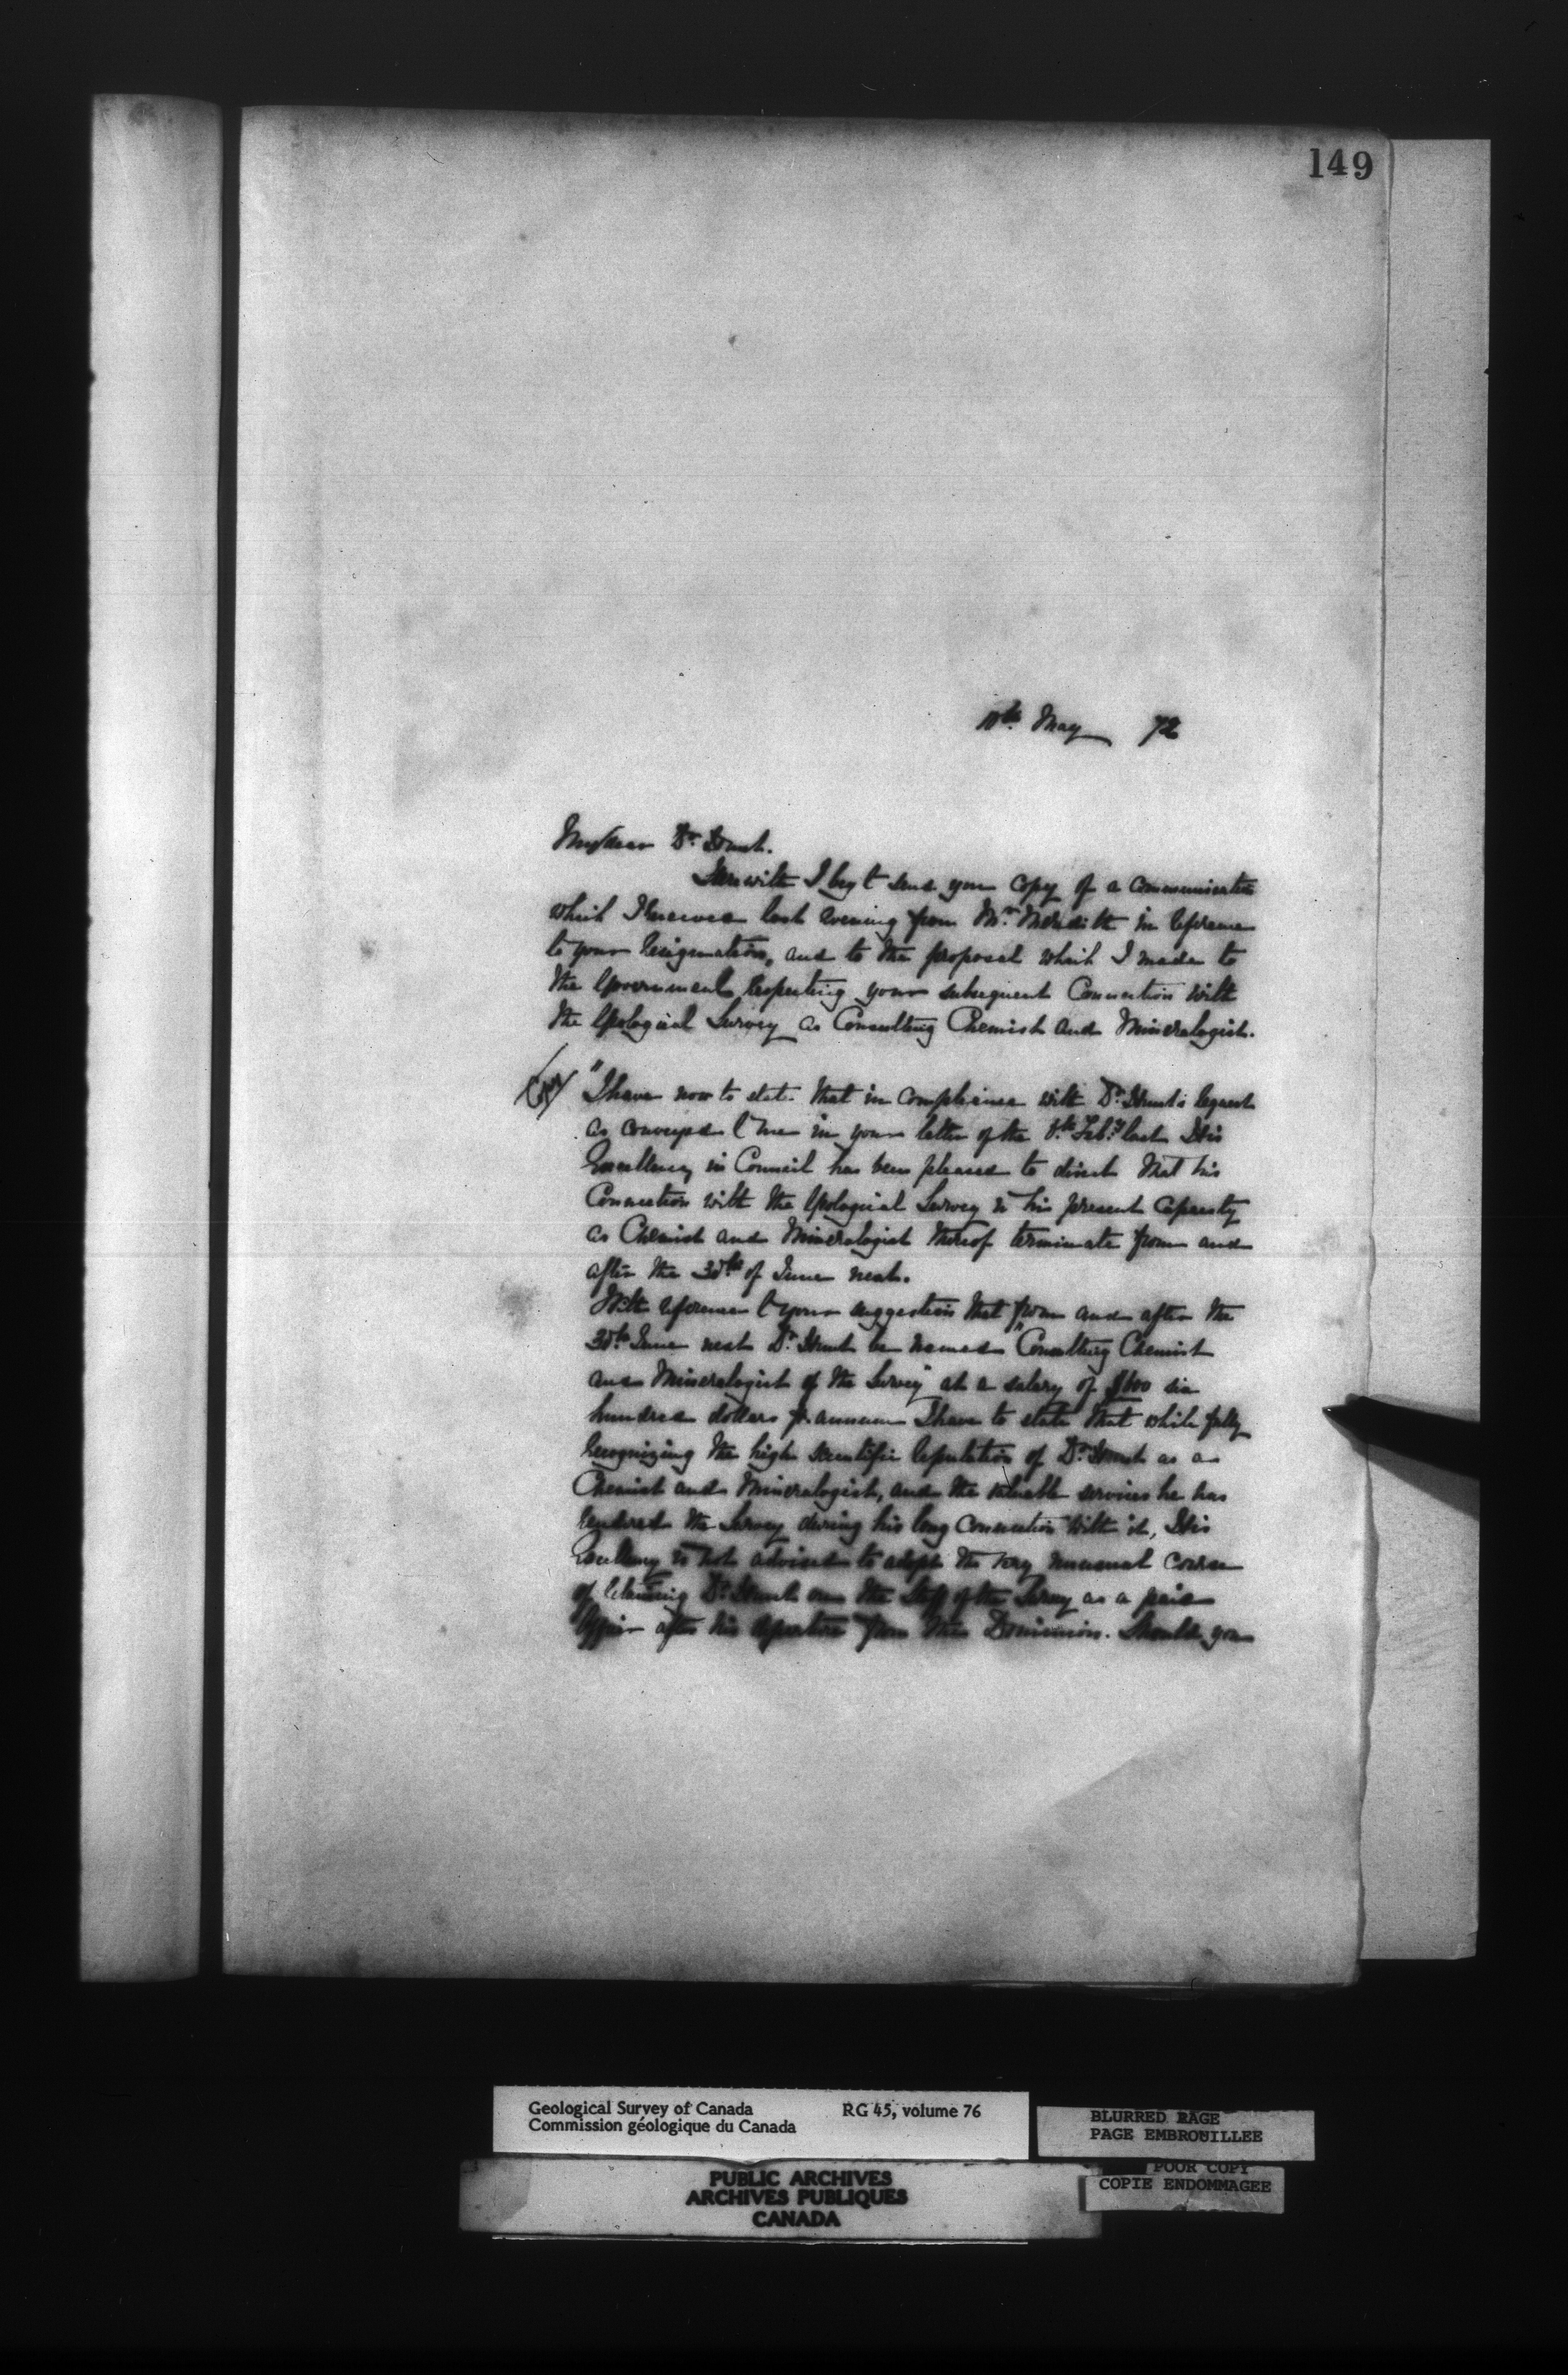 149
11th May 72
My dear Dr. Hunt.
Herewith I beg to send you copy of a communication
which I received last evening from Mr. Meredith in reference
to your resignation, and to the proposal which I made to
the Government respecting your subsequent Connection with
the Geological Survey as Consulting Chemist and Mineralogist.
Copy
"I have now to state that in compliance with Dr. Hunt's request
as conveyed to me in your letter of the 8th Feby last His
Excellency in Council has been pleased to direct that his
Connection with the Geological Survey in his present capacity
as Chemist and Mineralogist thereof terminate from and
after the 30th of June next.
With reference to your suggestion that from and after the
30th June next Dr. Hunt be named "Consulting Chemist
and Mineralogist of the Survey" at a salary of $600 six
hundred dollars pr. annum I have to state that while fully
recognizing the high scientific reputation of Dr. Hunt as a
Chemist and Mineralogist, and the valuable services he has
rendered the Survey during his long Connection with it, His
Excellency is not advised to adopt the very unusual course
of retaining Dr. Hunt on the Staff of the Survey as a paid
Officer after his departure from the Dominion. Should you
Geological Survey of Canada RG 45, volume 76
Commission géologique du Canada
BLURRED PAGE
PAGE EMBROUILLEE
POOR COPY
COPIE ENDOMMAGEE
PUBLIC ARCHIVES
ARCHIVES PUBLIQUES
CANADA